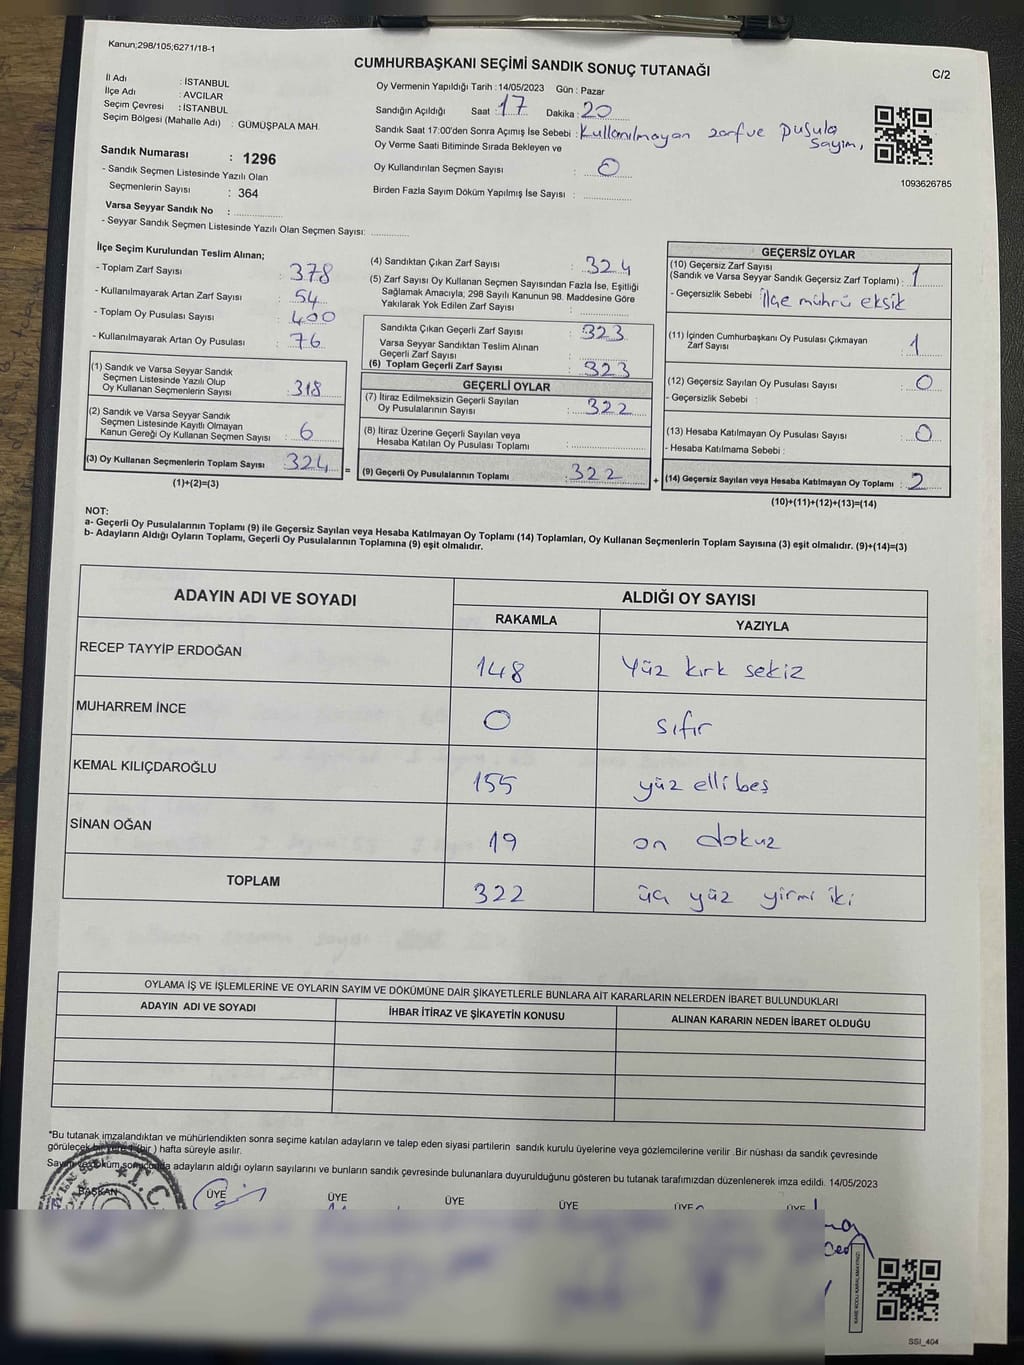 Kanun;298/105;6271/18-1
CUMHURBAŞKANI SEÇİMİ SANDIK SONUÇ TUTANAĞI
C/2
İl Adı : İSTANBUL
İlçe Adı : AVCILAR
Seçim Çevresi : İSTANBUL
Seçim Bölgesi (Mahalle Adı) : GÜMÜŞPALA MAH.
Sandık Numarası : 1296
- Sandık Seçmen Listesinde Yazılı Olan
Seçmenlerin Sayısı : 364
Varsa Seyyar Sandık No :
- Seyyar Sandık Seçmen Listesinde Yazılı Olan Seçmen Sayısı:
Oy Vermenin Yapıldığı Tarih : 14/05/2023 Gün : Pazar
Sandığın Açıldığı Saat : 17 Dakika : 20
Sandık Saat 17:00'den Sonra Açımış İse Sebebi : Kullanılmayan zarf ve pusula
sayım,
Oy Verme Saati Bitiminde Sırada Bekleyen ve
Oy Kullandırılan Seçmen Sayısı : 0
Birden Fazla Sayım Döküm Yapılmış İse Sayısı :
1093626785
İlçe Seçim Kurulundan Teslim Alınan;
- Toplam Zarf Sayısı : 378
- Kullanılmayarak Artan Zarf Sayısı : 54
- Toplam Oy Pusulası Sayısı : 400
- Kullanılmayarak Artan Oy Pusulası : 76
(1) Sandık ve Varsa Seyyar Sandık
Seçmen Listesinde Yazılı Olup
Oy Kullanan Seçmenlerin Sayısı : 318
(2) Sandık ve Varsa Seyyar Sandık
Seçmen Listesinde Kayıtlı Olmayan
Kanun Gereği Oy Kullanan Seçmen Sayısı : 6
(3) Oy Kullanan Seçmenlerin Toplam Sayısı : 324 =
(1)+(2)=(3)
(4) Sandıktan Çıkan Zarf Sayısı : 324
(5) Zarf Sayısı Oy Kullanan Seçmen Sayısından Fazla İse, Eşitliği
Sağlamak Amacıyla, 298 Sayılı Kanunun 98. Maddesine Göre
Yakılarak Yok Edilen Zarf Sayısı :
Sandıkta Çıkan Geçerli Zarf Sayısı : 323
Varsa Seyyar Sandıktan Teslim Alınan
Geçerli Zarf Sayısı :
(6) Toplam Geçerli Zarf Sayısı : 323
GEÇERLİ OYLAR
(7) İtiraz Edilmeksizin Geçerli Sayılan
Oy Pusulalarının Sayısı : 322
(8) İtiraz Üzerine Geçerli Sayılan veya
Hesaba Katılan Oy Pusulası Toplamı :
(9) Geçerli Oy Pusulalarının Toplamı : 322 +
GEÇERSİZ OYLAR
(10) Geçersiz Zarf Sayısı
(Sandık ve Varsa Seyyar Sandık Geçersiz Zarf Toplamı) : 1
- Geçersizlik Sebebi : ilçe mührü eksik
(11) İçinden Cumhurbaşkanı Oy Pusulası Çıkmayan
Zarf Sayısı : 1
(12) Geçersiz Sayılan Oy Pusulası Sayısı : 0
- Geçersizlik Sebebi :
(13) Hesaba Katılmayan Oy Pusulası Sayısı : 0
- Hesaba Katılmama Sebebi :
(14) Geçersiz Sayılan veya Hesaba Katılmayan Oy Toplamı : 2
(10)+(11)+(12)+(13)=(14)
NOT:
a- Geçerli Oy Pusulalarının Toplamı (9) ile Geçersiz Sayılan veya Hesaba Katılmayan Oy Toplamı (14) Toplamları, Oy Kullanan Seçmenlerin Toplam Sayısına (3) eşit olmalıdır. (9)+(14)=(3)
b- Adayların Aldığı Oyların Toplamı, Geçerli Oy Pusulalarının Toplamına (9) eşit olmalıdır.
ADAYIN ADI VE SOYADI
ALDIĞI OY SAYISI
RAKAMLA YAZIYLA
RECEP TAYYİP ERDOĞAN 148 yüz kırk sekiz
MUHARREM İNCE 0 sıfır
KEMAL KILIÇDAROĞLU 155 yüz elli beş
SİNAN OĞAN 19 on dokuz
TOPLAM 322 üç yüz yirmi iki
OYLAMA İŞ VE İŞLEMLERİNE VE OYLARIN SAYIM VE DÖKÜMÜNE DAİR ŞİKAYETLERLE BUNLARA AİT KARARLARIN NELERDEN İBARET BULUNDUKLARI
ADAYIN ADI VE SOYADI İHBAR İTİRAZ VE ŞİKAYETİN KONUSU ALINAN KARARIN NEDEN İBARET OLDUĞU
*Bu tutanak imzalandıktan ve mühürlendikten sonra seçime katılan adayların ve talep eden siyasi partilerin sandık kurulu üyelerine veya gözlemcilerine verilir .Bir nüshası da sandık çevresinde
görülecek bir yere 1 (bir ) hafta süreyle asılır.
Sayım ve döküm sonucunda adayların aldığı oyların sayılarını ve bunların sandık çevresinde bulunanlara duyurulduğunu gösteren bu tutanak tarafımızdan düzenlenerek imza edildi. 14/05/2023
BAŞKAN ÜYE ÜYE ÜYE ÜYE ÜYE ÜYE
T.C
KARE KODU KARALAMAYINIZ!
SSI_404